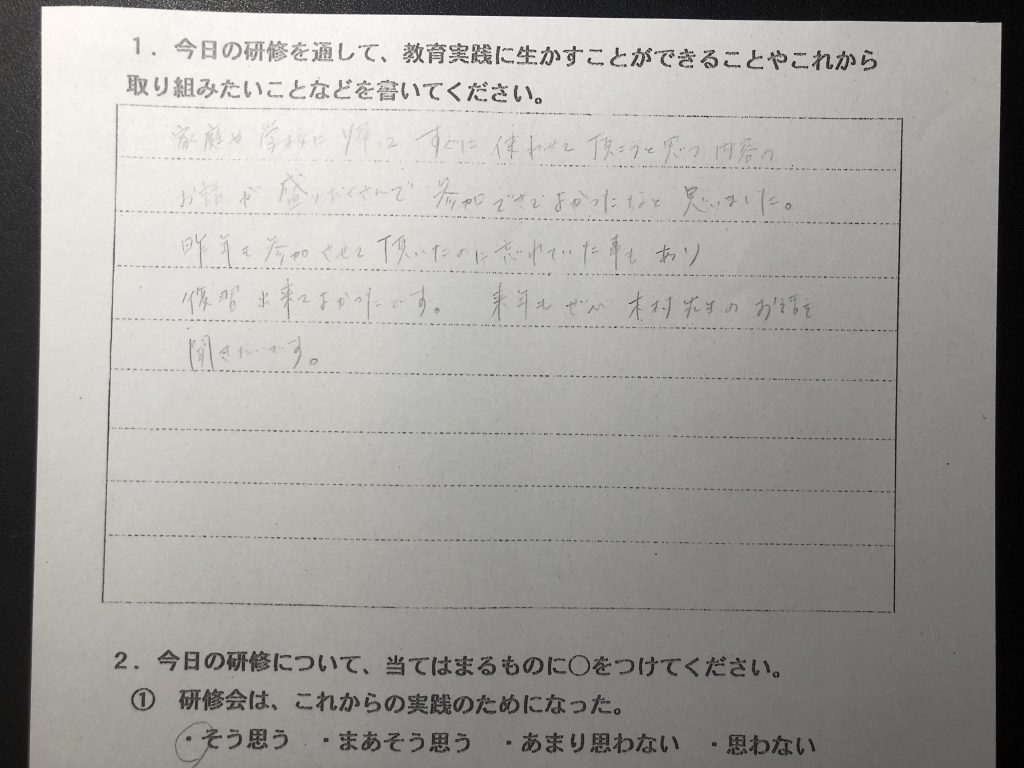 1．今日の研修を通して、教育実践に生かすことができることやこれから
取り組みたいことなどを書いてください。
家庭や学校に帰って すぐに 使わせて 頂こうと思う 内容の
お話が 盛りだくさんで 参加できてよかったなと 思いました。
昨年も参加させて頂いたのに忘れていた事も あり
復習出来てよかったです。 来年もぜひ 木村先生のお話を
聞きたいです。
2．今日の研修について、当てはまるものに○をつけてください。
① 研修会は、これからの実践のためになった。
・そう思う ・まあそう思う ・あまり思わない ・思わない